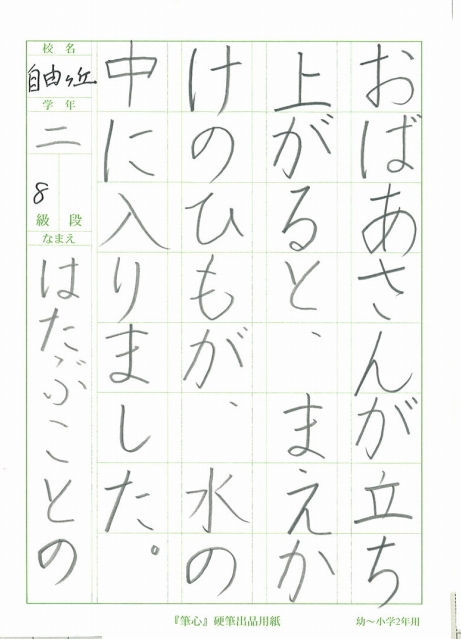 おばあさんが立ち
上がると、まえか
けのひもが、水の
中に入りました。
校名
自由ヶ丘
学年
二
8
級段
なまえ
はたぶことの
『筆心』硬筆出品用紙
幼～小学2年用